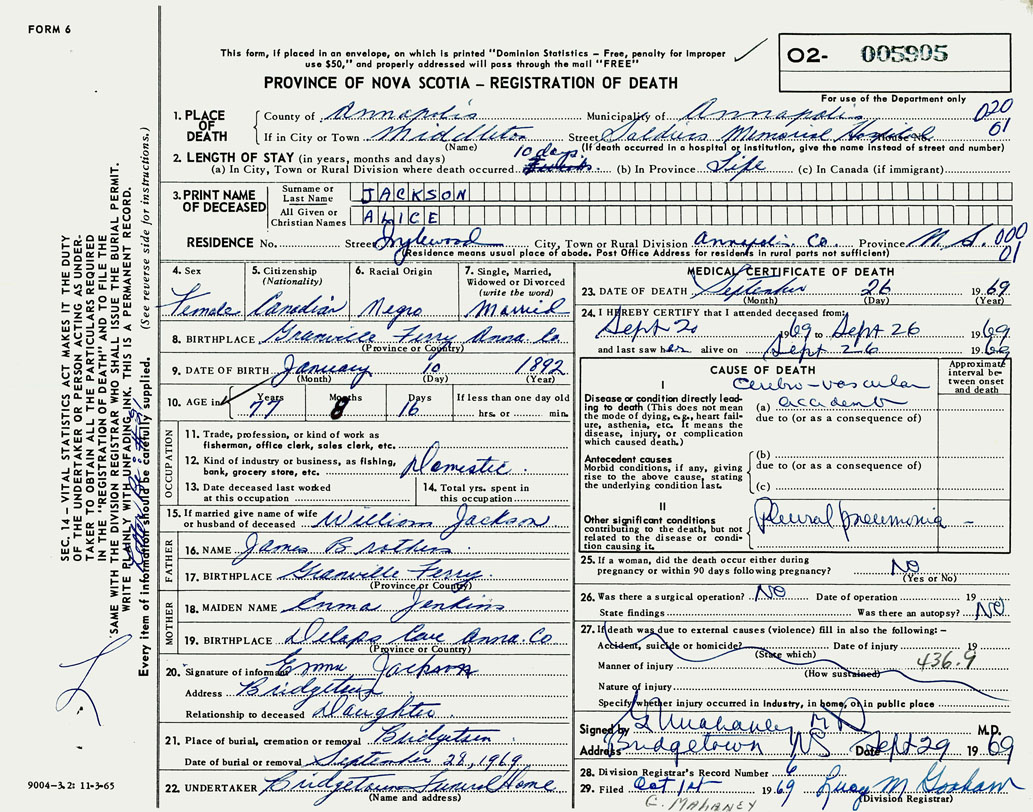 FORM 6
This form, if placed in an envelope, on which is printed "Dominion Statistics – Free, penalty for improper
use $50," and properly addressed will pass through the mail "FREE"
PROVINCE OF NOVA SCOTIA – REGISTRATION OF DEATH
O2- 005905
For use of the Department only
020
01
1. PLACE OF DEATH
County of Annapolis Municipality of Annapolis
If in City or Town Middleton Street Soldiers Memorial Hospital
(Name) (If death occurred in a hospital or institution, give the name instead of street and number)
2. LENGTH OF STAY (in years, months and days) 10 days
(a) In City, Town or Rural Division where death occurred (b) In Province Life (c) In Canada (if immigrant)
3. PRINT NAME OF DECEASED
Surname or Last Name JACKSON
All Given or Christian Names ALICE
RESIDENCE No. Street Inglewood City, Town or Rural Division Annapolis Co. Province N.S. 000
(Residence means usual place of abode. Post Office Address for residents in rural parts not sufficient) 01
4. Sex 5. Citizenship 6. Racial Origin 7. Single, Married,
(Nationality) Widowed or Divorced
(write the word)
Female Canadian Negro Married
8. BIRTHPLACE Granville Ferry Anna Co.
(Province or Country)
9. DATE OF BIRTH January 10 1892
(Month) (Day) (Year)
10. AGE in Years Months Days If less than one day old
77 8 16 hrs. or min.
OCCUPATION
11. Trade, profession, or kind of work as
fisherman, office clerk, sales clerk, etc.
12. Kind of industry or business, as fishing, Domestic.
bank, grocery store, etc.
13. Date deceased last worked 14. Total yrs. spent in
at this occupation this occupation
15. If married give name of wife
or husband of deceased William Jackson
FATHER
16. NAME James Brothers
17. BIRTHPLACE Granville Ferry.
(Province or Country)
MOTHER
18. MAIDEN NAME Emma Jenkins
19. BIRTHPLACE Delaps Cove Anna. Co
(Province or Country)
20. Signature of informant Emma Jackson
Address Bridgetown
Relationship to deceased Daughter.
21. Place of burial, cremation or removal Bridgetown
Date of burial or removal September 28, 1969.
22. UNDERTAKER Bridgetown Funeral Home
(Name and address)
MEDICAL CERTIFICATE OF DEATH
23. DATE OF DEATH September 26 1969
(Month) (Day) (Year)
24. I HEREBY CERTIFY that I attended deceased from
Sept 20 1969 to Sept 26 1969
and last saw her alive on Sept 26 1969
CAUSE OF DEATH
Approximate interval between onset and death
I
Disease or condition directly leading to death (This does not
mean the mode of dying, e.g., heart failure, asthenia, etc. It means the
disease, injury, or complication
which caused death.)
Cerebro-vascular
(a) accident
due to (or as a consequence of)
Antecedent causes
Morbid conditions, if any, giving
rise to the above cause, stating
the underlying condition last.
(b)
due to (or as a consequence of)
(c)
II
Other significant conditions
contributing to the death, but not
related to the disease or condition
causing it.
Pleural pneumonia –
25. If a woman, did the death occur either during
pregnancy or within 90 days following pregnancy? NO
(Yes or No)
26. Was there a surgical operation? NO Date of operation 19
State findings Was there an autopsy? NO
27. If death was due to external causes (violence) fill in also the following: –
Accident, suicide or homicide? Date of injury 19
(State which)
Manner of injury 436.9
(How sustained)
Nature of injury
Specify whether injury occurred in industry, in home, or in public place
Signed by G Mahaney MD M.D.
Address Bridgetown NS Date Sept 29 1969
28. Division Registrar's Record Number 6
29. Filed Oct 1st 1969
(Division Registrar)
MAHANEY
SEC. 14 – VITAL STATISTICS ACT MAKES IT THE DUTY
OF THE UNDERTAKER OR PERSON ACTING AS UNDER-
TAKER TO OBTAIN ALL THE PARTICULARS REQUIRED
IN THE "REGISTRATION OF DEATH" AND TO FILE THE
SAME WITH THE DIVISION REGISTRAR WHO SHALL ISSUE THE BURIAL PERMIT.
WRITE PLAINLY WITH UNFADING INK. THIS IS A PERMANENT RECORD.
Every item of information should be carefully supplied. (See reverse side for instructions.)
9004-3.2: 11-3-65